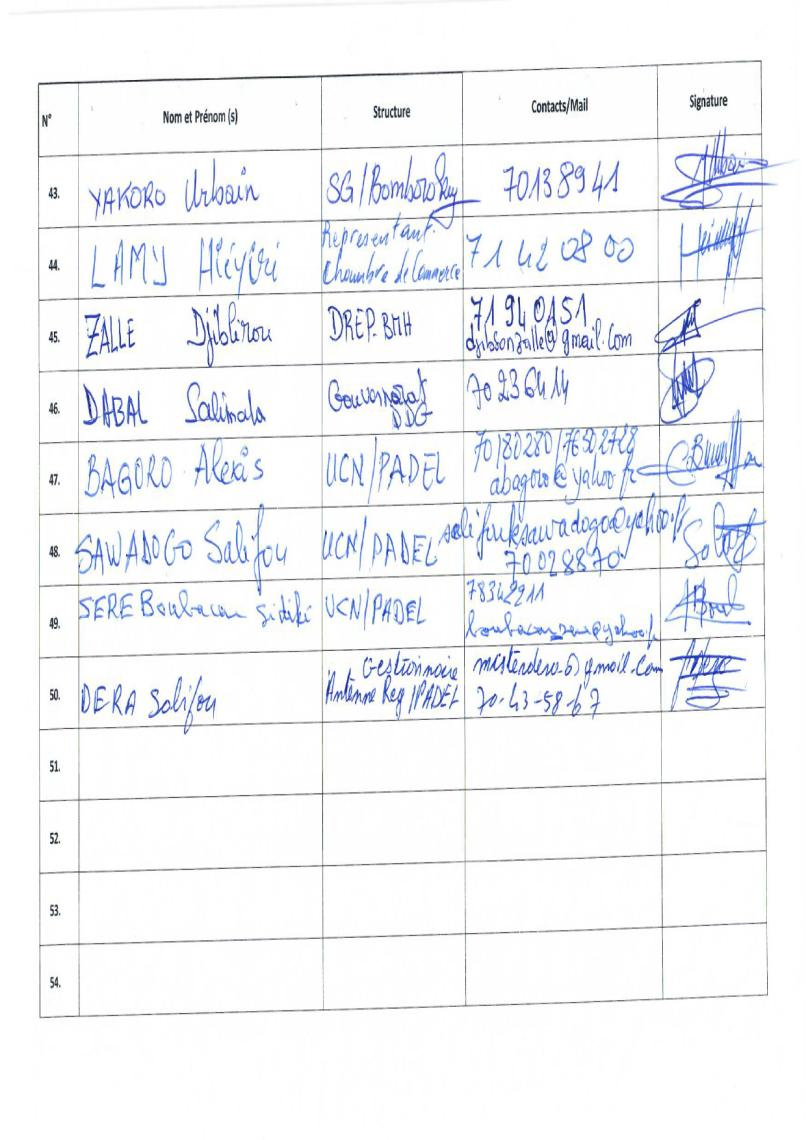 N° Nom et Prénom (s) Structure Contacts/Mail Signature
43. YAKORO Urbain SG/Bomborokuy 70138941
44. LAMY Représentant
Chambre de Commerce 71 42 08 00
45. ZALLE DREP-BMH 71940151
djibsonzalle@gmail.com
46. DABAL Salimata Gouvernorat 70236414
47. BAGORO Alexis UCN/PADEL
abagoro@yahoo.fr
48. SAWADOGO Salifou UCN/PADEL salifouksawadogo@yahoo.fr
70028870
49. SERE Boubacar Sidiki UCN/PADEL 78342911
50. DERA Salifou Gestionnaire
Antenne Reg/PADEL 70-43-58-67
51.
52.
53.
54.